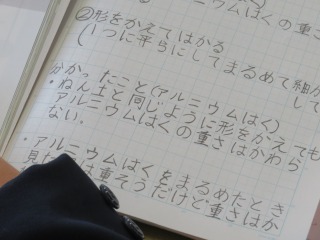 ニウムはくの重さ
②形をかえてはかる
(1つに平らにしてまるめて細か
して
分かったこと(アルミウムはく)
・ねん土と同じように形をかえても
アルミニウムはくの重さはかわら
ない。
・アルミニウムはくをまるめたとき
見たは重そうだけど重さはか